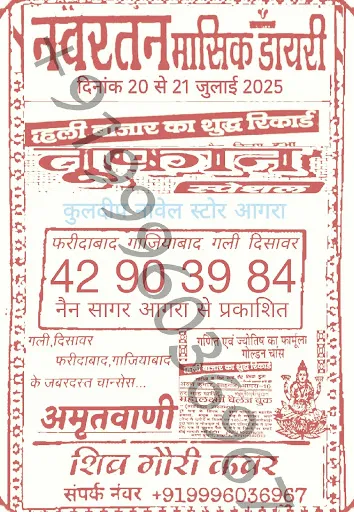 नवरतन मासिक डॉयरी
दिनांक 20 से 21 जुलाई 2025
दिल्ली बाजार का शुद्ध रिकार्ड
स्पेशल
कुलदीप नॉवेल स्टोर आगरा
फरीदाबाद गाजियाबाद गली दिसावर
42 90 39 84
नैन सागर आगरा से प्रकाशित
गली,दिसावर
फरीदाबाद,गाजियाबाद
के जबरदस्त चान्सेस...
अमृतवाणी
गणित एवं ज्योतिष का फार्मूला
गोल्डन चांस
बाजार का शुद्ध रिकार्ड
शिव गौरी कवर
संपर्क नंबर +919996036967
+919996036967